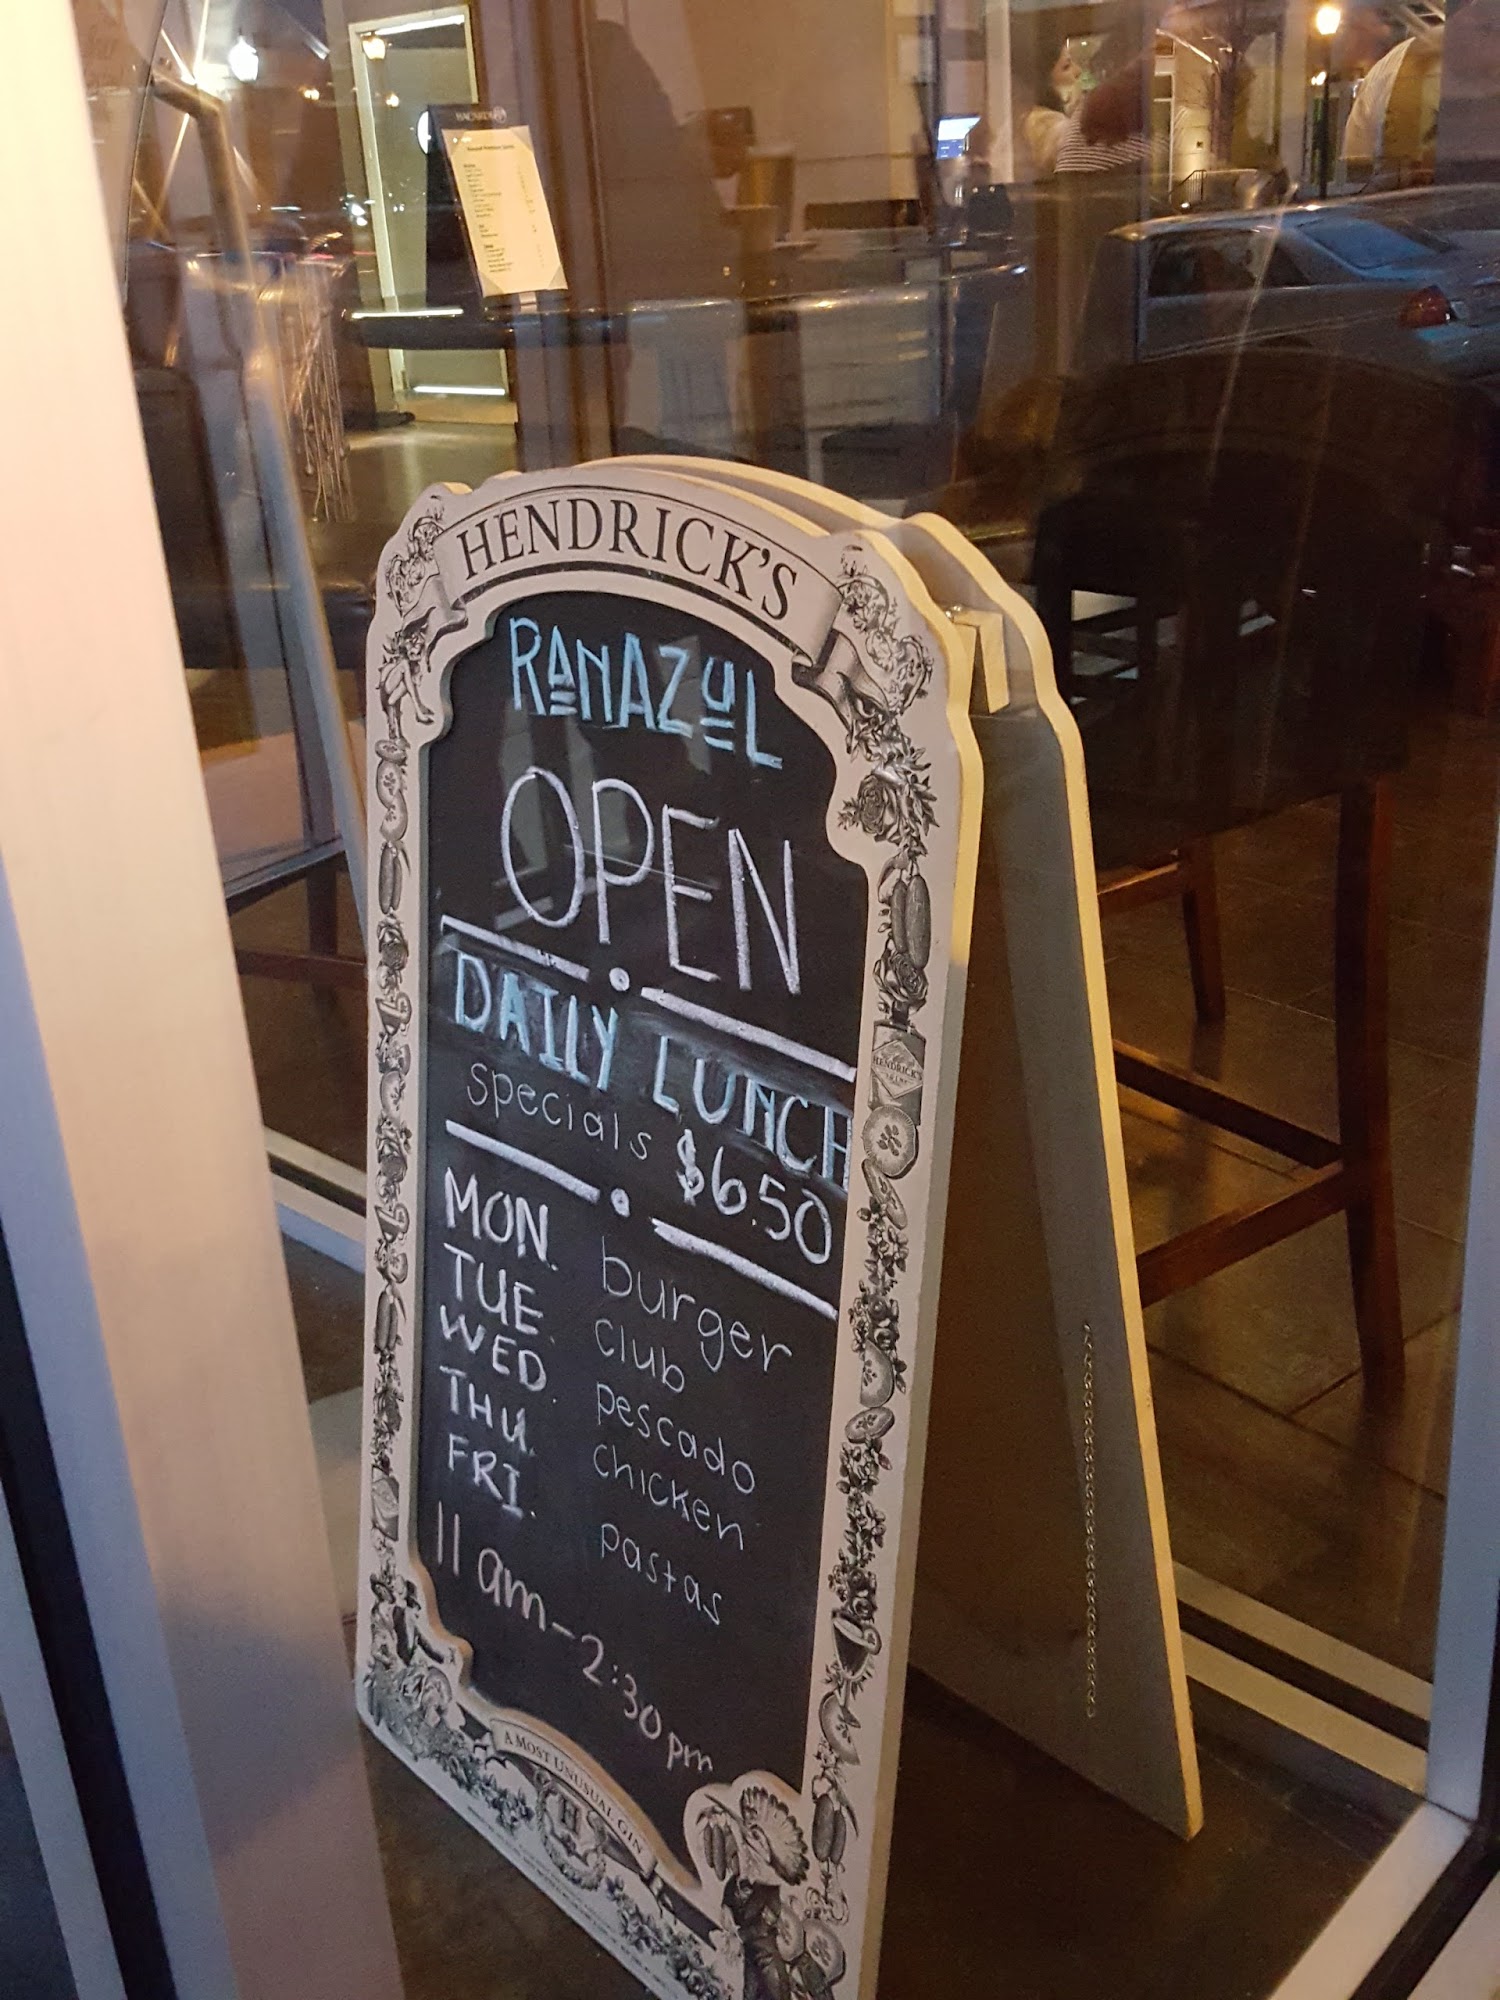 BACARDI
HENDRICK'S
RANAZUL
OPEN
DAILY LUNCH
specials $6.50
MON. burger
TUE. club
WED. pescado
THU. chicken
FRI. pastas
11 am-2:30pm
HENDRICK'S
GIN
A MOST UNUSUAL GIN
H